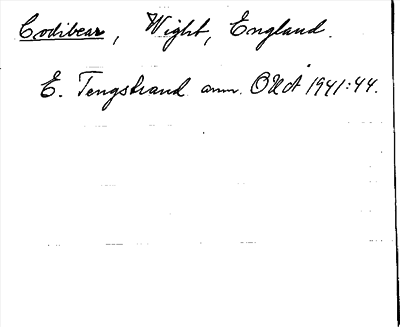 Codibear, Wight, England.
E. Tengstrand anm. OUÅ 1941:44.